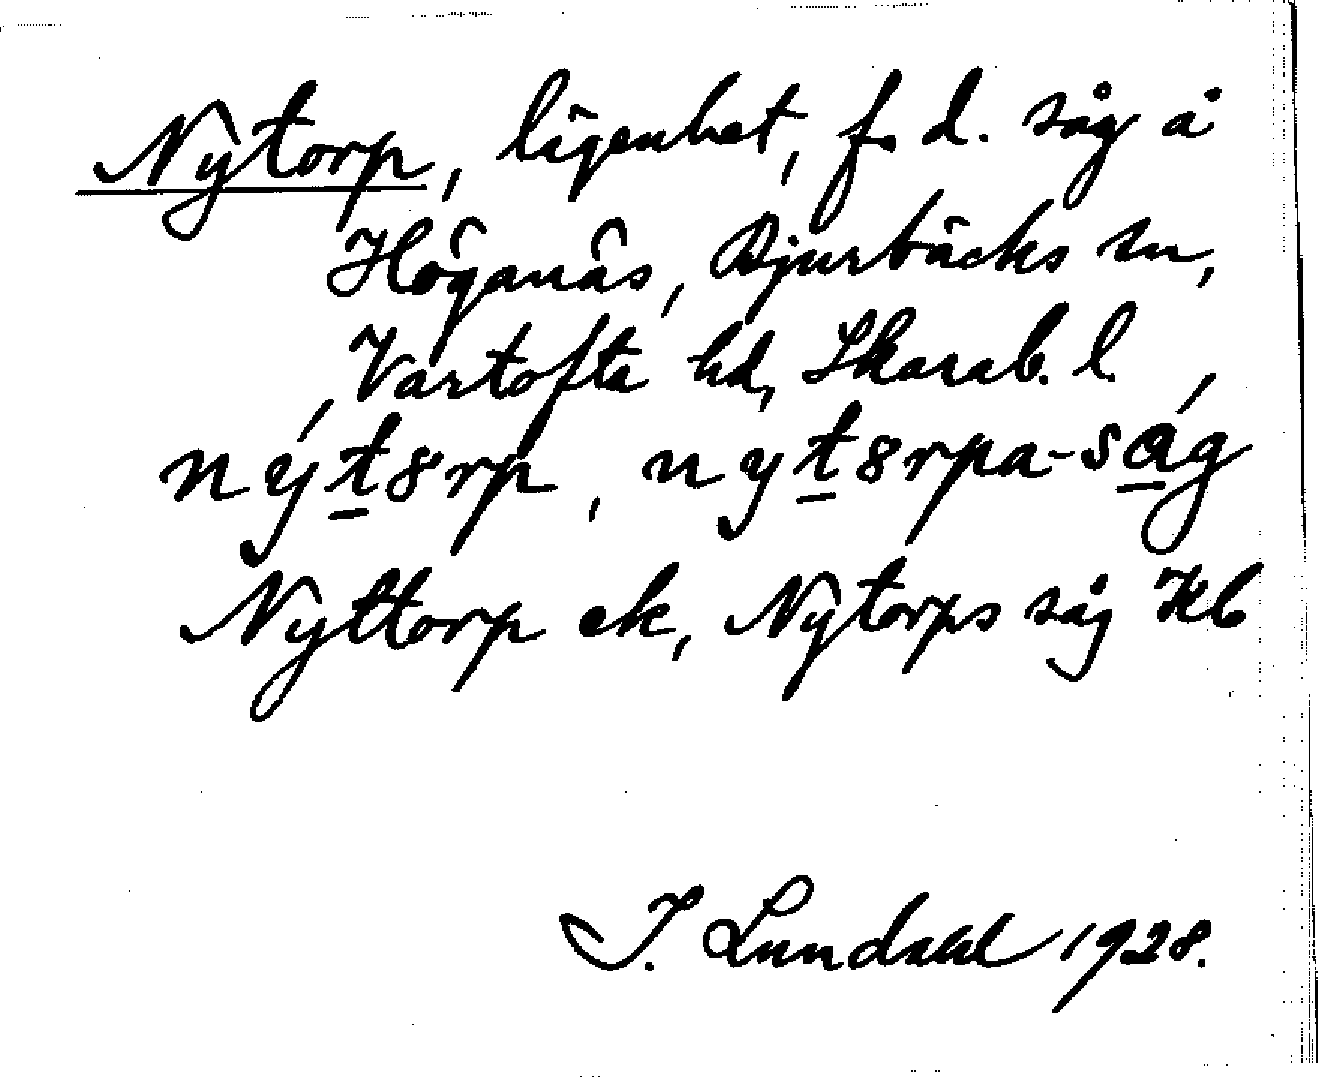 Nytorp, lägenhet, f. d. såg å
Höganäs, Djurbäcks sn,
Vartofta hd, Skarab. l.
nýt8rp, nyt8rpa-ság
Nyttorp ek, Nytorps såg Kb
I. Lundahl 1928.